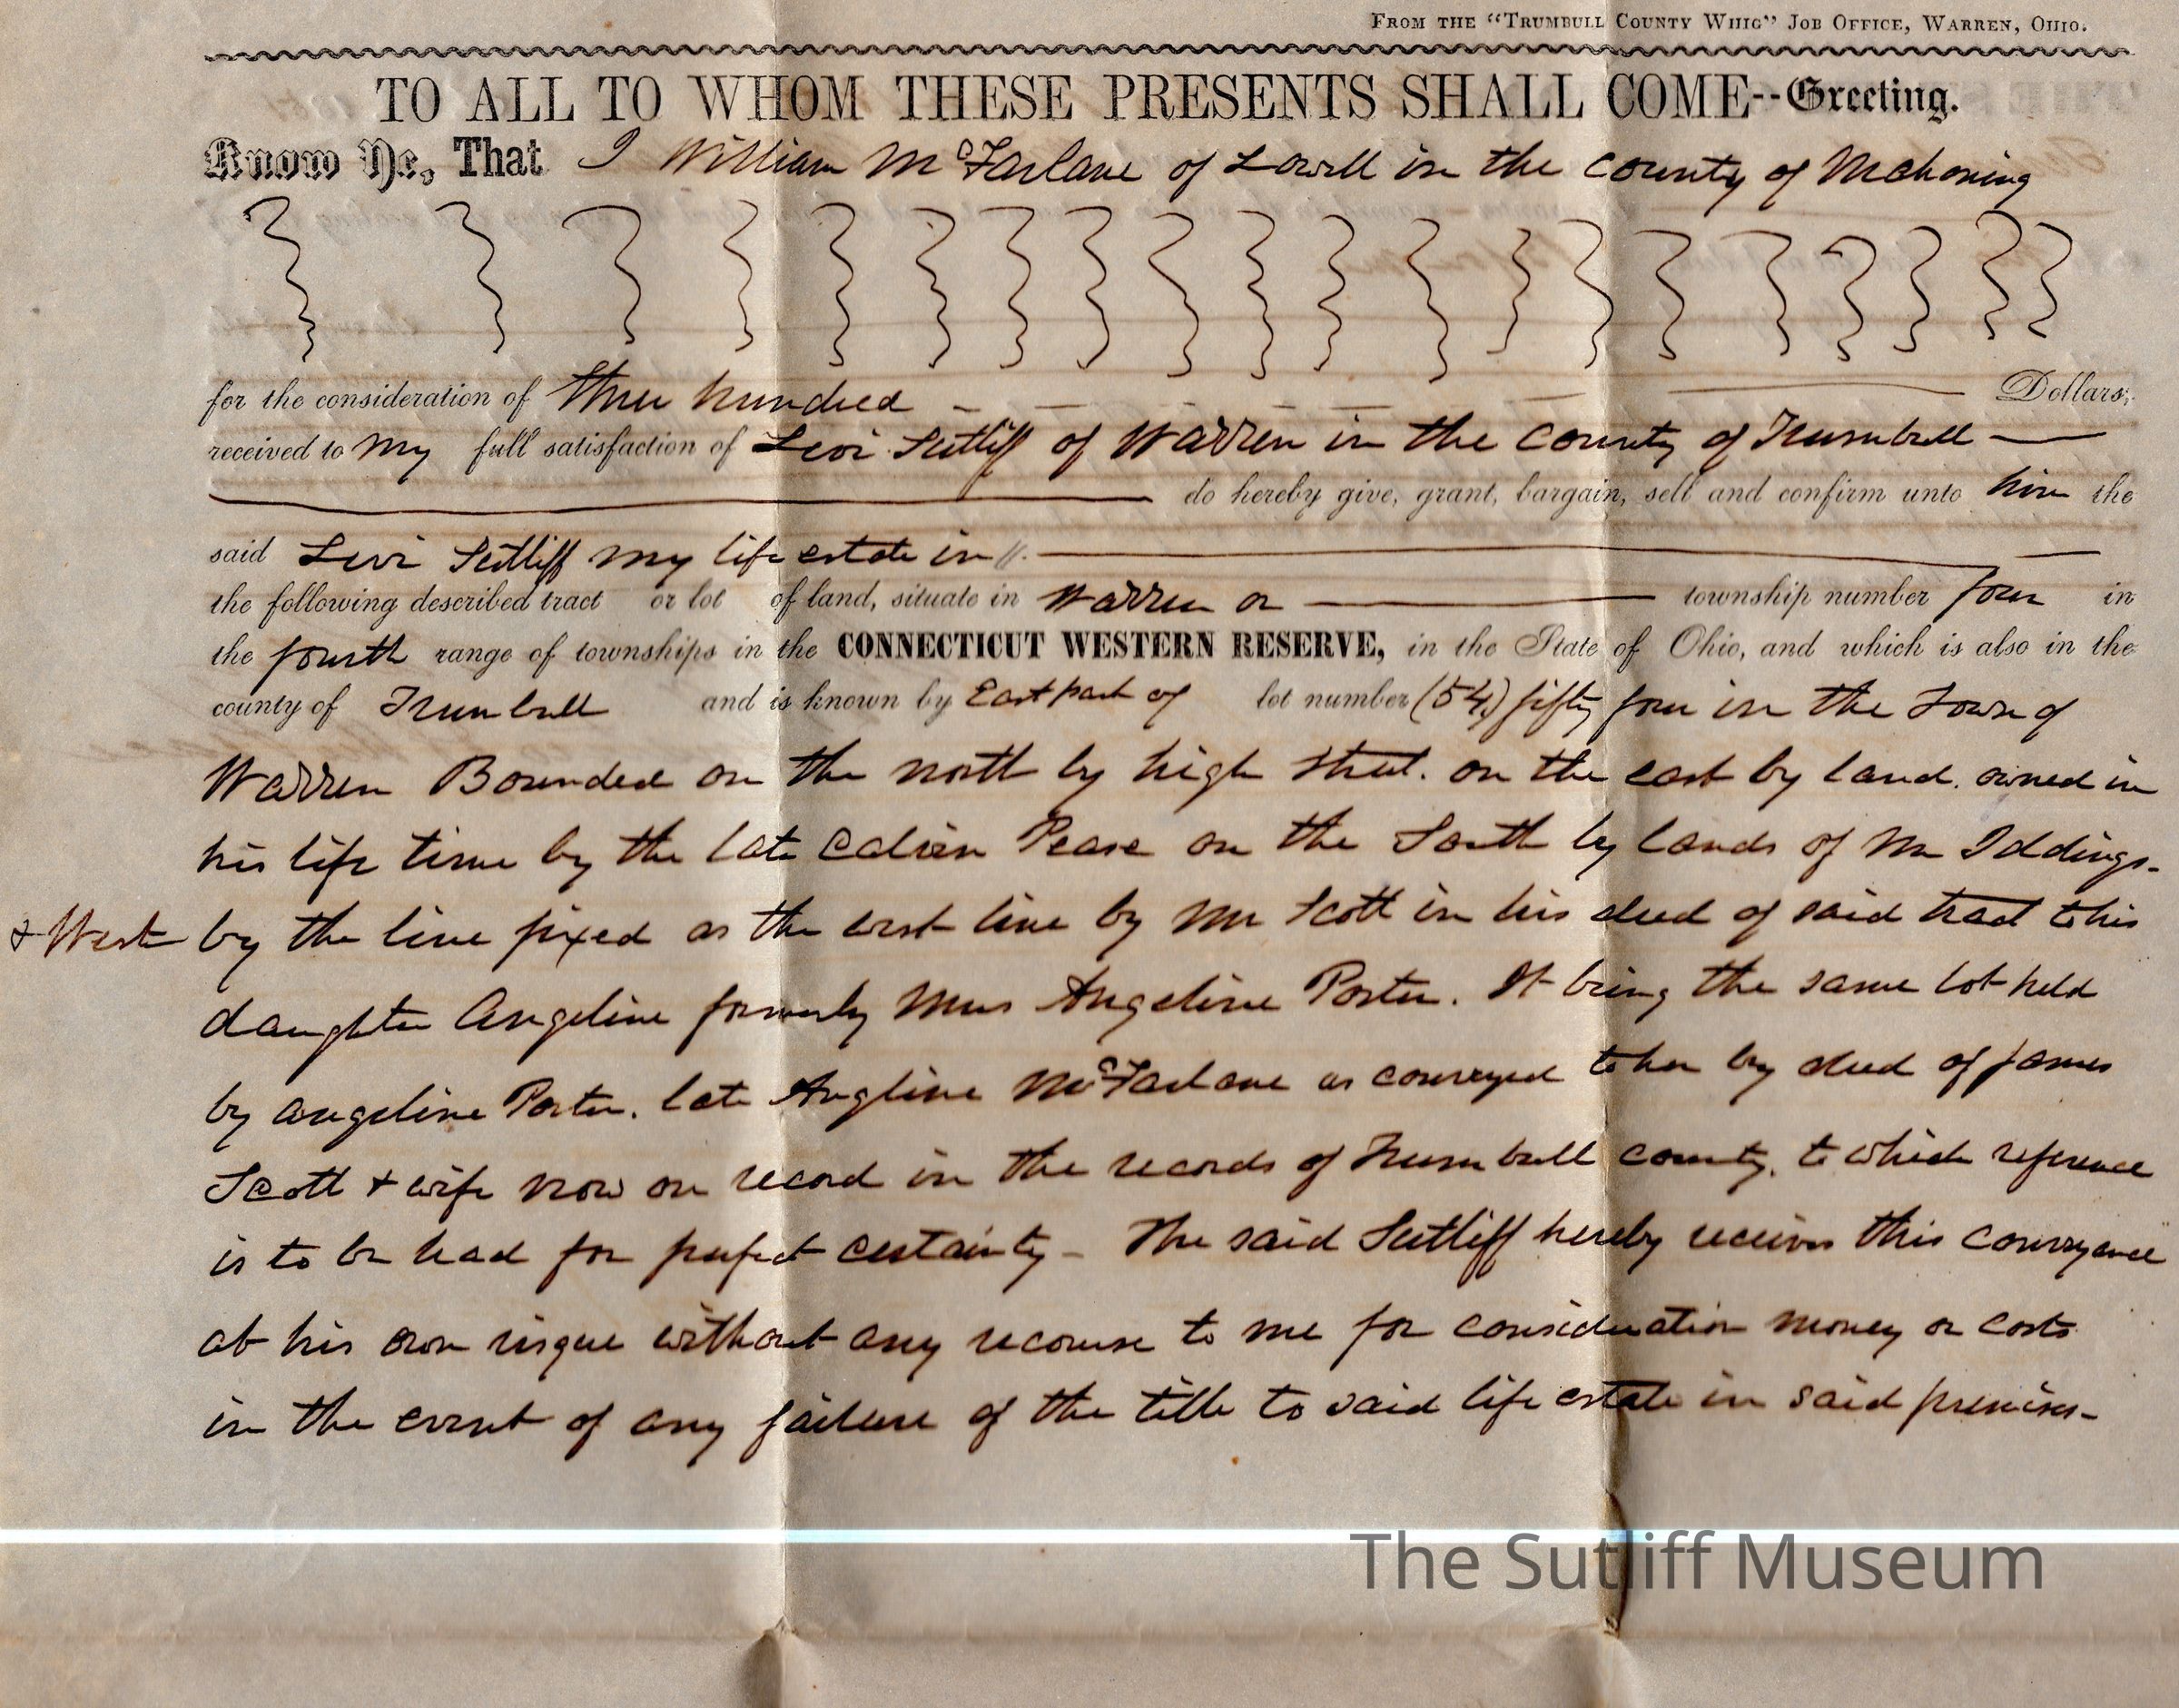 FROM THE "TRUMBULL COUNTY WHIG" JOB OFFICE, WARREN, OHIO.
TO ALL TO WHOM THESE PRESENTS SHALL COME--Greeting.
Know Ye, That I William McFarlane of Lowell in the county of Mahoning
for the consideration of three hundred Dollars;
received to my full satisfaction of Levi Sutliff of Warren in the County of Trumbull
do hereby give, grant, bargain, sell and confirm unto him the
said Levi Sutliff my life estate in
the following described tract or lot of land, situate in Warren or township number four in
the fourth range of townships in the CONNECTICUT WESTERN RESERVE, in the State of Ohio, and which is also in the
county of Trumbull and is known by East part of lot number (54) fifty four in the Town of
Warren Bounded on the north by high Street. on the east by land owned in
his life time by the late Calvin Pease on the South by lands of Mr Iddings-
& West by the line fixed as the east line by Mr Scott in his deed of said tract to his
daughter Angeline formerly Mrs Angeline Porter. It being the same lot held
by Angeline Porter. late Angline McFarlane as conveyed to her by deed of James
Scott & wife now on record in the records of Trumbull county. to which reference
is to be had for perfect certainty - The said Sutliff hereby receives this conveyance
at his own risque without any recourse to me for consideration money or costs
in the event of any failure of the title to said life estate in said premises-
The Sutliff Museum